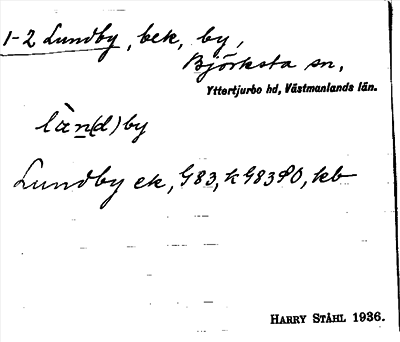 1-2 Lundby, bek, by,
Björksta sn,
Yttertjurbo hd, Västmanlands län.
làn(d)by
Lundby ek, G83, k G83 SO, kb
HARRY STÅHL 1936.